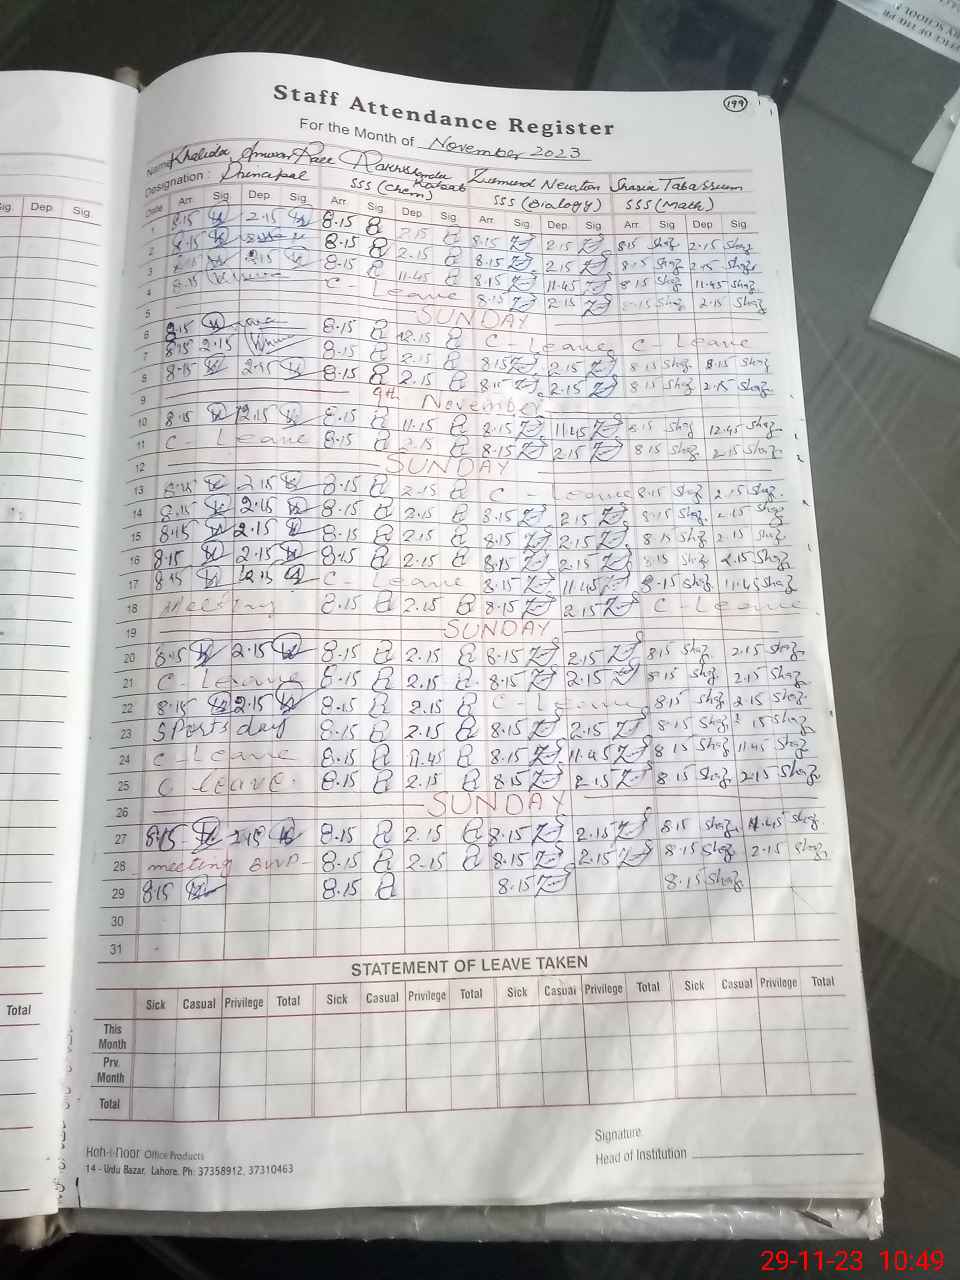 199
Staff Attendance Register
For the Month of November 2023
Name Khalida Rakhshanda Kokab Zumurd Newton Shazia Tabassum
Designation : Principal SSS (Chem) SSS (Biology) SSS (Math)
Sig. Dep Sig. Date Arr. Sig. Dep Sig. Arr. Sig. Dep. Sig. Arr. Sig. Dep. Sig. Arr. Sig Dep Sig.
1 8.15 2.15 8.15 2.15 8.15 2.15 8.15 Shaz 2.15 Shaz
2 8.15 8.15 2.15 8.15 2.15 8.15 Shaz 2.15 Shaz
3 8.15 11.45 8.15 11.45 8.15 Shaz 11.45 Shaz
4 8.15 C - Leave 8.15 2.15 8.15 Shaz 2.15 Shaz
5 SUNDAY
6 8.15 8.15 2.15 C - Leave C - Leave
7 8.15 2.15 8.15 2.15 8.15 2.15 8.15 Shaz 8.15 Shaz
8 8.15 2.15 8.15 2.15 8.15 2.15 8.15 Shaz 2.15 Shaz
9 9th November
10 8.15 2.15 8.15 11.15 2.15 11.45 8.15 Shaz 12.45 Shaz
11 C - Leave 8.15 2.15 8.15 2.15 8.15 Shaz 2.15 Shaz
12 SUNDAY
13 8.15 2.15 8.15 2.15 C - Leave 8.15 Shaz 2.15 Shaz
14 8.15 2.15 8.15 2.15 8.15 2.15 8.15 Shaz 2.15 Shaz
15 8.15 2.15 8.15 2.15 8.15 2.15 8.15 Shaz 2.15 Shaz
16 8.15 2.15 8.15 2.15 8.15 2.15 8.15 Shaz 2.15 Shaz
17 8.15 2.15 C - Leave 8.15 11.45 8.15 Shaz 11.45 Shaz
18 Meeting 8.15 2.15 8.15 2.15 C - Leave
19 SUNDAY
20 8.15 2.15 8.15 2.15 8.15 2.15 8.15 Shaz 2.15 Shaz
21 C - Leave 8.15 2.15 8.15 2.15 8.15 Shaz 2.15 Shaz
22 8.15 2.15 8.15 2.15 C - Leave 8.15 Shaz 2.15 Shaz
23 Sports day 8.15 2.15 8.15 2.15 8.15 Shaz 15 Shaz
24 C - Leave 8.15 11.45 8.15 11.45 8.15 Shaz 11.45 Shaz
25 C Leave. 8.15 2.15 8.15 2.15 8.15 Shaz 2.15 Shaz
26 SUNDAY
27 8.15 2.15 8.15 2.15 8.15 2.15 8.15 Shaz 11.45 Shaz
28 meeting BWP - 8.15 2.15 8.15 2.15 8.15 Shaz 2.15 Shaz
29 8.15 8.15 8.15 8.15 Shaz
30
31
STATEMENT OF LEAVE TAKEN
Total Sick Casual Privilege Total Sick Casual Privilege Total Sick Casual Privilege Total Sick Casual Privilege Total
This Month
Prv. Month
Total
Signature.
Head of Institution
Koh-i-Noor Office Products
14 - Urdu Bazar, Lahore. Ph: 37358912, 37310463
29-11-23 10:49